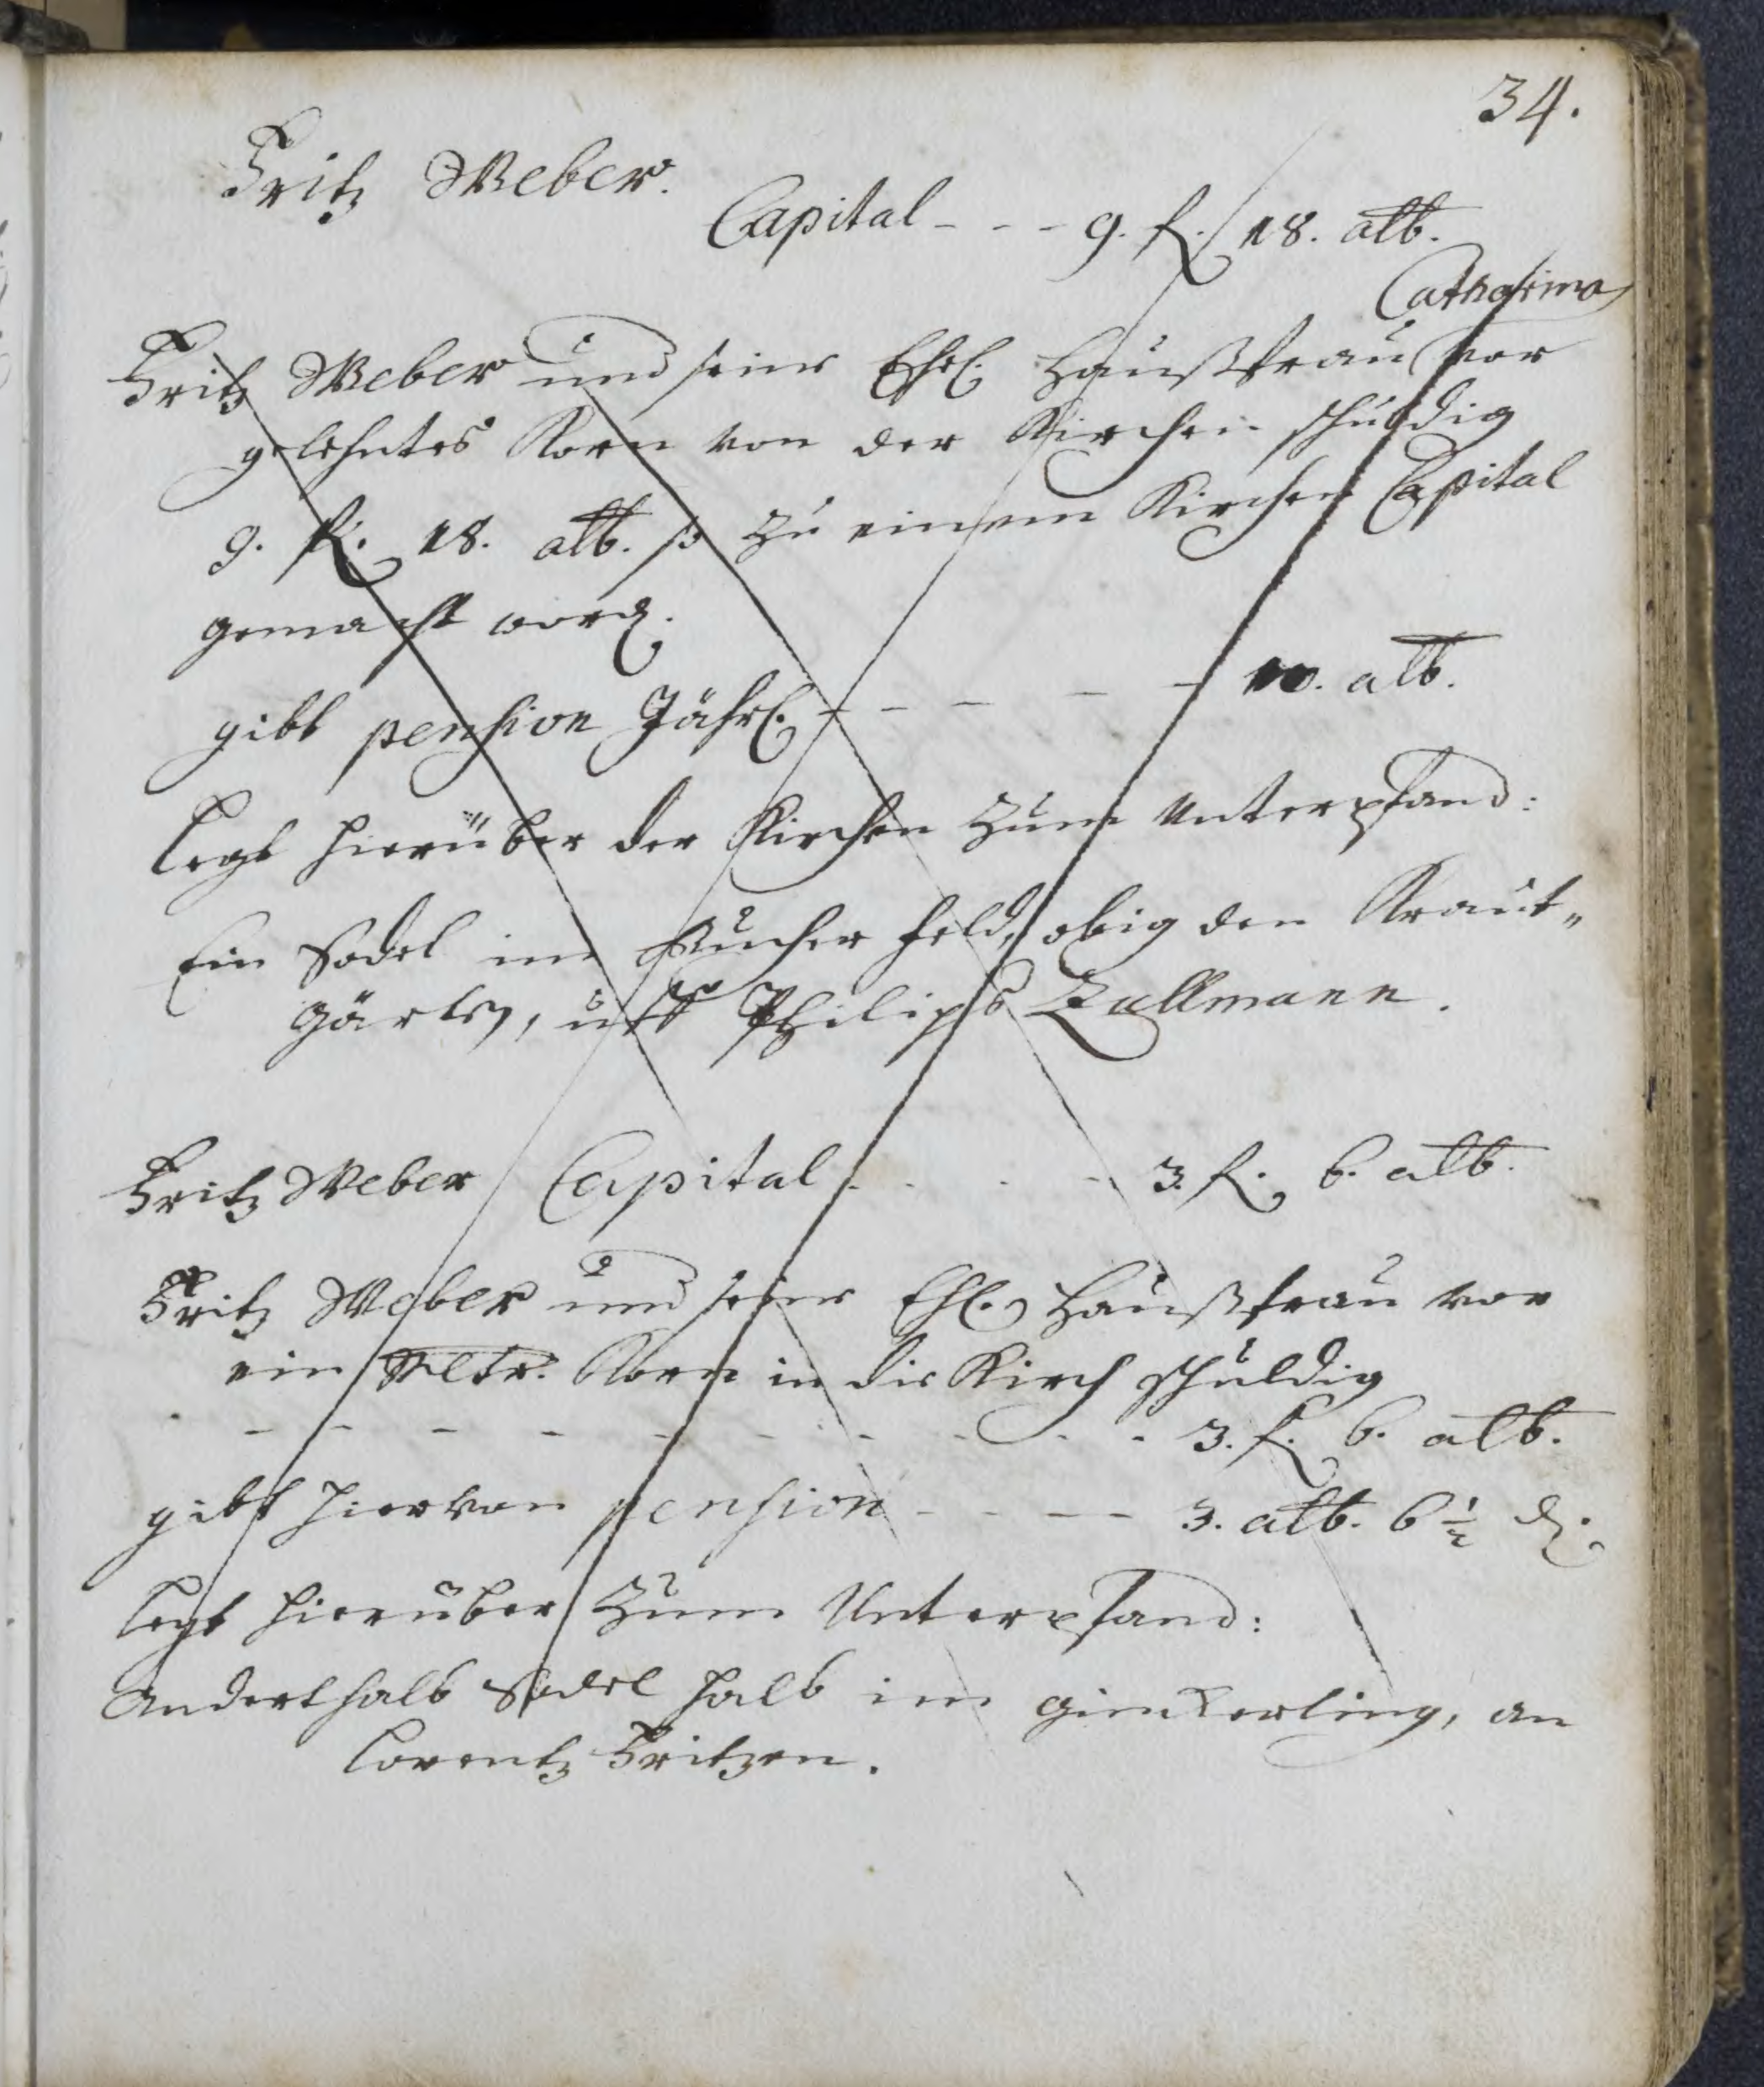 34.
Fritz Weber.
Capital - - - 9. fl. 18. alb.
Catharina
Fritz Weber und seine Ehel. Haußfrau vor
gelehntes Korn von der Kirchen schuldig
9. fl. 18. alb. so zu einem Kirchen Capital
gemacht word.
gibt pension Jährl. - - - - - 10. alb.
Legt hierüber der Kirchen zum Unterpfand:
Ein Sodel im feld, obig den Kraut„
gärten, uff Philips Zallmann.
Fritz Weber Capital - - - - 3. fl. 6. alb.
Fritz Weber und seine Ehl. Haußfrau vor
ein Mltr. Korn in die Kirch schuldig
- - - - - - - - - - 3. fl. 6. alb.
gibt hiervon pension - - - - 3. alb. 6 1/2 d.
legt hierüber zum Unterpfand:
Anderthalb Sodel halb im an
Lorentz Fritzen.